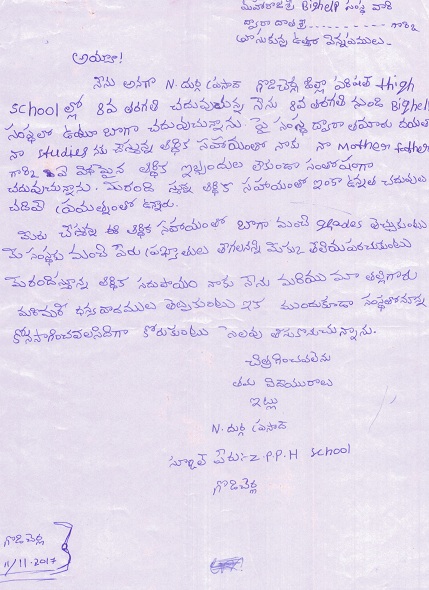 మహారాజశ్రీ Bighelp సంస్థ వారి
ద్వారా దాతశ్రీ గారికి
వ్రాసుకున్న ఉత్తరం విన్నపములు.
అయ్యా!
నేను అనగా N. దుర్గ ప్రసాద్ గొడిచెర్ల జిల్లా పరిషత్ High
School ల్లో 8వ తరగతి చదువుచున్న నేను 8వ తరగతి నుండి Bighelp
సంస్థలో ఉంటూ బాగా చదువుచున్నాను. పై సంస్థ ద్వారా తమరు దయతో
నా studies కు చేస్తున్న ఆర్థిక సహాయంతో నాకు నా Mother father
గారికి ఏ విధమైన ఆర్థిక ఇబ్బందులు లేకుండా సంతోషంగా
చదువుచున్నాను. మీరంది స్తున్న ఆర్థిక సహాయంతో ఇంకా ఉన్నత చదువులు
చదివే ప్రయత్నంతో ఉన్నాను.
మీరు చేస్తున్న ఈ ఆర్థిక సహాయంతో బాగా మంచి grades తెచ్చుకుంటు
మీ సంస్థకు మంచి పేరు ప్రఖ్యాతులు తేగలనని మీకు తెలియపరచుకుంటు
మీరందిస్తున్న ఆర్థిక సదుపాయం నాకు నేను మరియు మా తల్లిగారు
మరిమరీ ధన్యవాదములు తెల్పుకుంటు ఇక ముందుకూడా సంస్థలో నన్ను
కొనసాగించవలసినదిగా కోరుకుంటు సెలవు తీసుకొనుచున్నాను.
చిత్తగించవలెను
తమ విధేయురాలు
ఇట్లు
N. దుర్గ ప్రసాద్
స్కూల్ పేరు:- Z.P.P.H School
గొడిచెర్ల
గొడిచెర్ల
11/11-2017